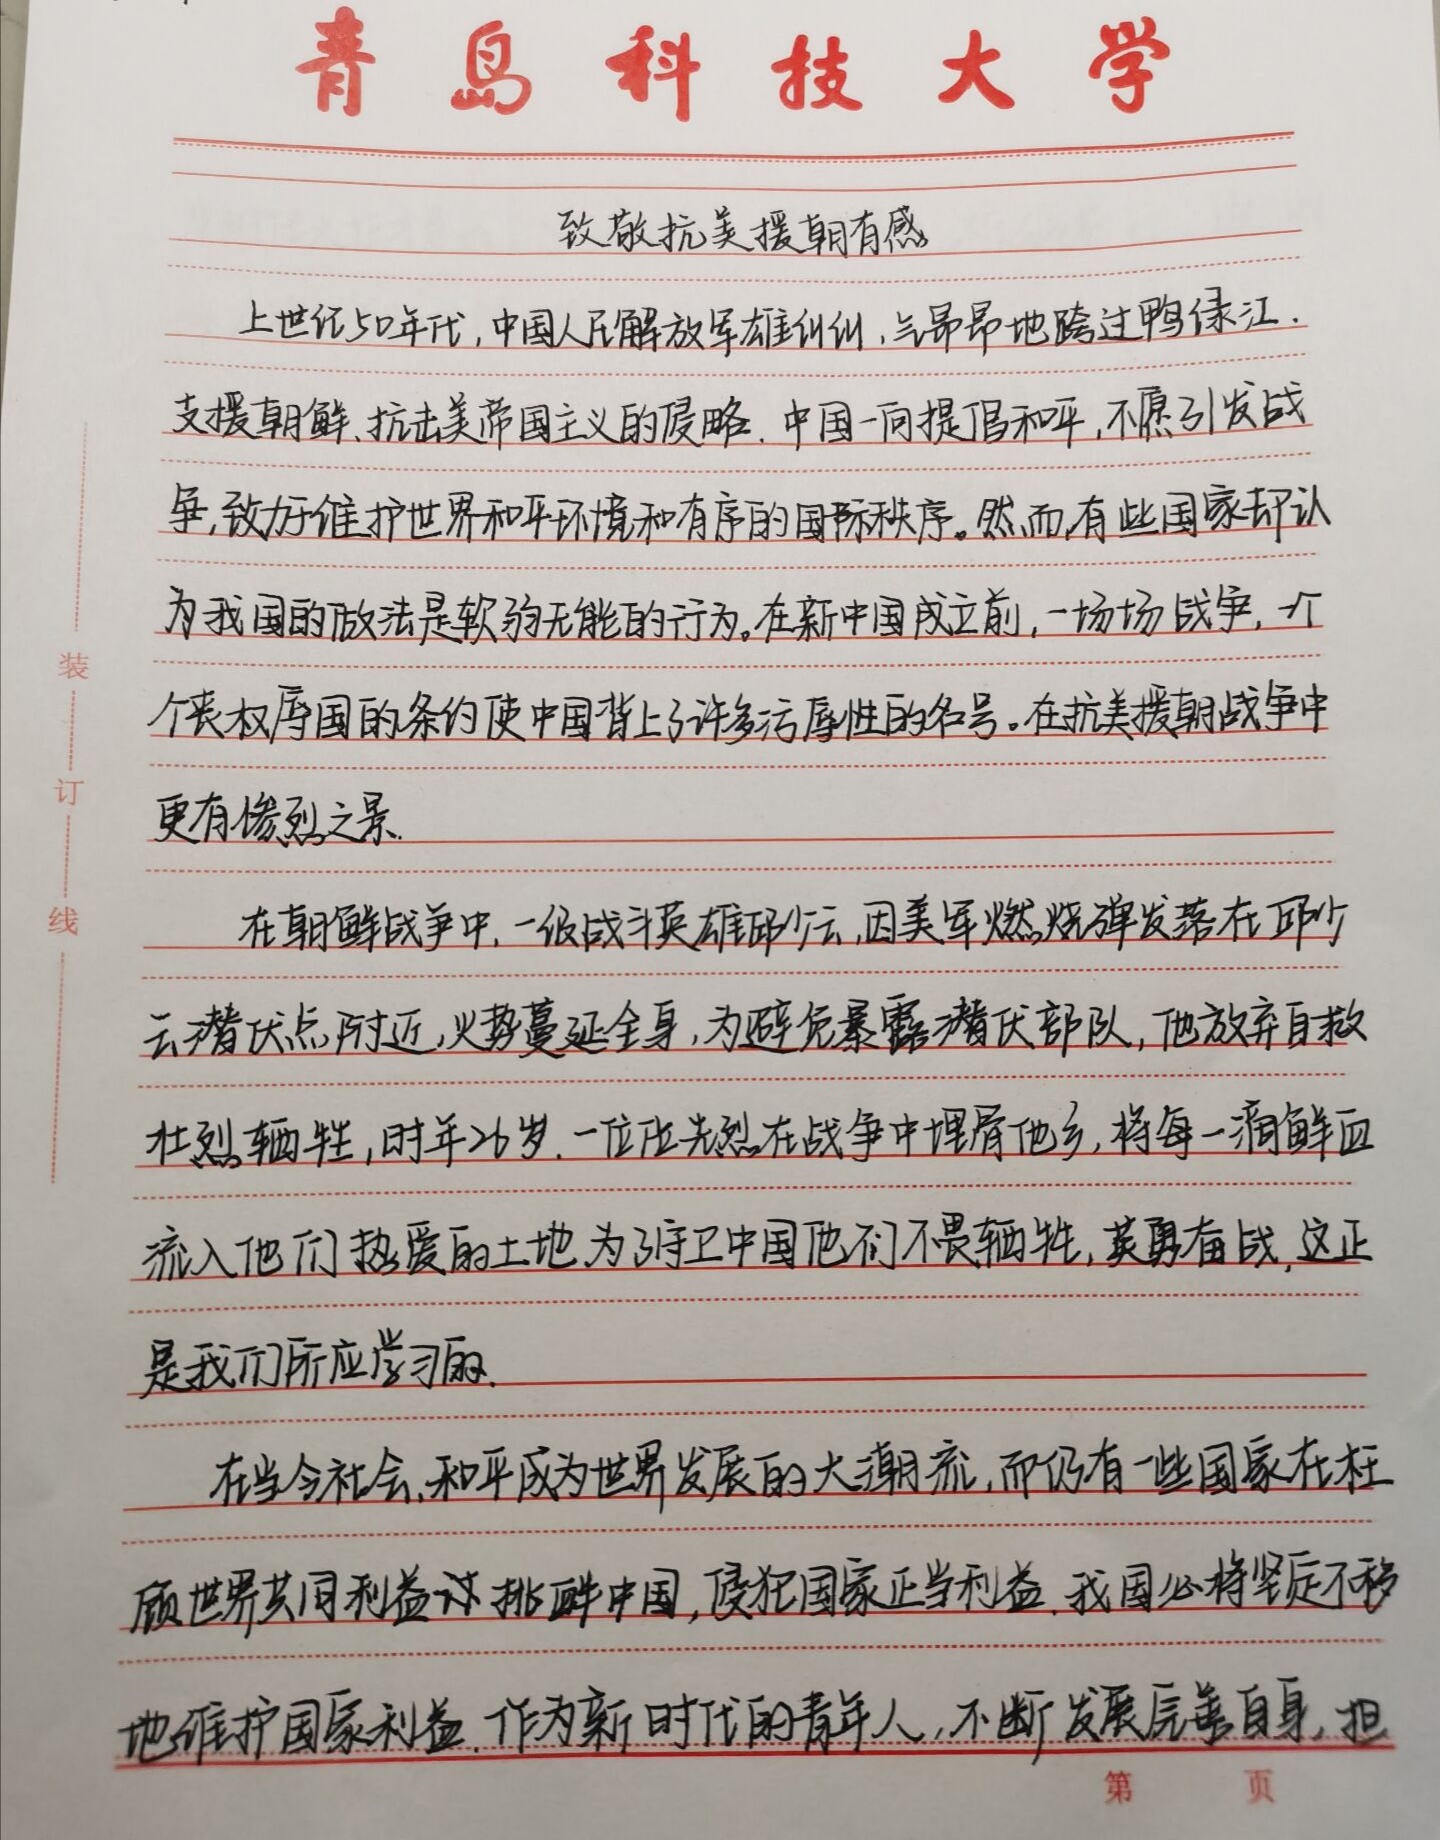 青岛科技大学
致敬抗美援朝有感
上世纪50年代,中国人民解放军雄纠纠,气昂昂地跨过鸭绿江.
支援朝鲜、抗击美帝国主义的侵略.中国一向提倡和平,不愿引发战
争,致力于维护世界和平环境和有序的国际秩序。然而,有些国家却认
为我国的做法是软弱无能的行为。在新中国成立前,一场场战争,一个
个丧权辱国的条约使中国背上了许多污辱性的名号。在抗美援朝战争中
更有惨烈之景.
在朝鲜战争中,一级战斗英雄邱少云,因美军燃烧弹发落在邱少
云潜伏点附近,火势蔓延全身,为避免暴露潜伏部队,他放弃自救
壮烈牺牲,时年26岁.一位位先烈在战争中埋骨他乡,将每一滴鲜血
流入他们热爱的土地.为了守卫中国他们不畏牺牲,英勇奋战,这正
是我们所应学习的.
在当今社会,和平成为世界发展的大潮流,而仍有一些国家在枉
顾世界共同利益 挑衅中国,侵犯国家正当利益.我国必将坚定不移
地维护国家利益.作为新时代的青年人,不断发展完善自身,担
装
订
线
第 页